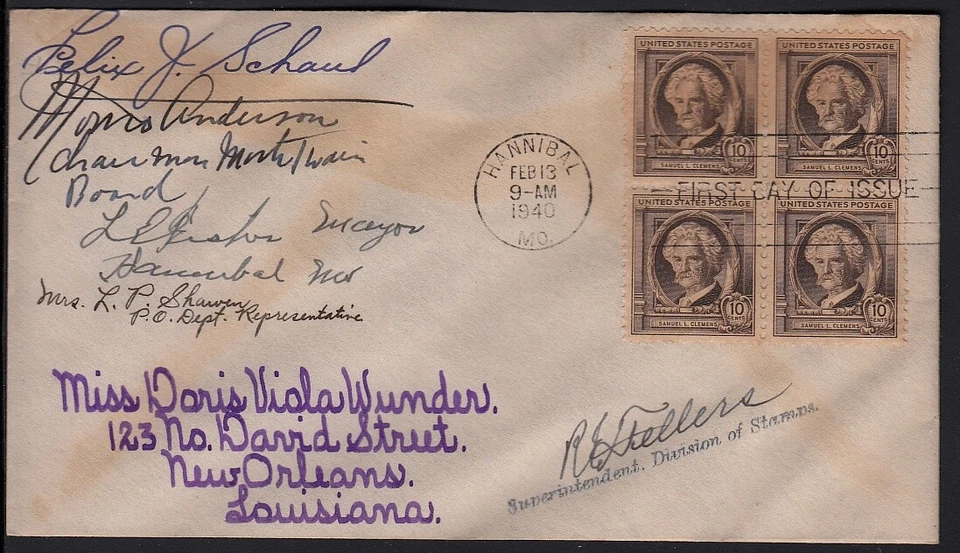 Felix J. Schaul
Morris Anderson
Chairman Mark Twain
Board
Mayor
Hannibal Mo
Mrs. L. P. Shawen
P.O. Dept. Representative
HANNIBAL
FEB 13
9-AM
1940
MO.
FIRST DAY OF ISSUE
UNITED STATES POSTAGE
10
CENTS
SAMUEL L. CLEMENS
UNITED STATES POSTAGE
10
CENTS
SAMUEL L. CLEMENS
UNITED STATES POSTAGE
10
CENTS
SAMUEL L. CLEMENS
UNITED STATES POSTAGE
10
CENTS
SAMUEL L. CLEMENS
Miss Doris Viola Wunder.
123 No. David Street.
New Orleans.
Louisiana.
R E Fellers
Superintendent, Division of Stamps.